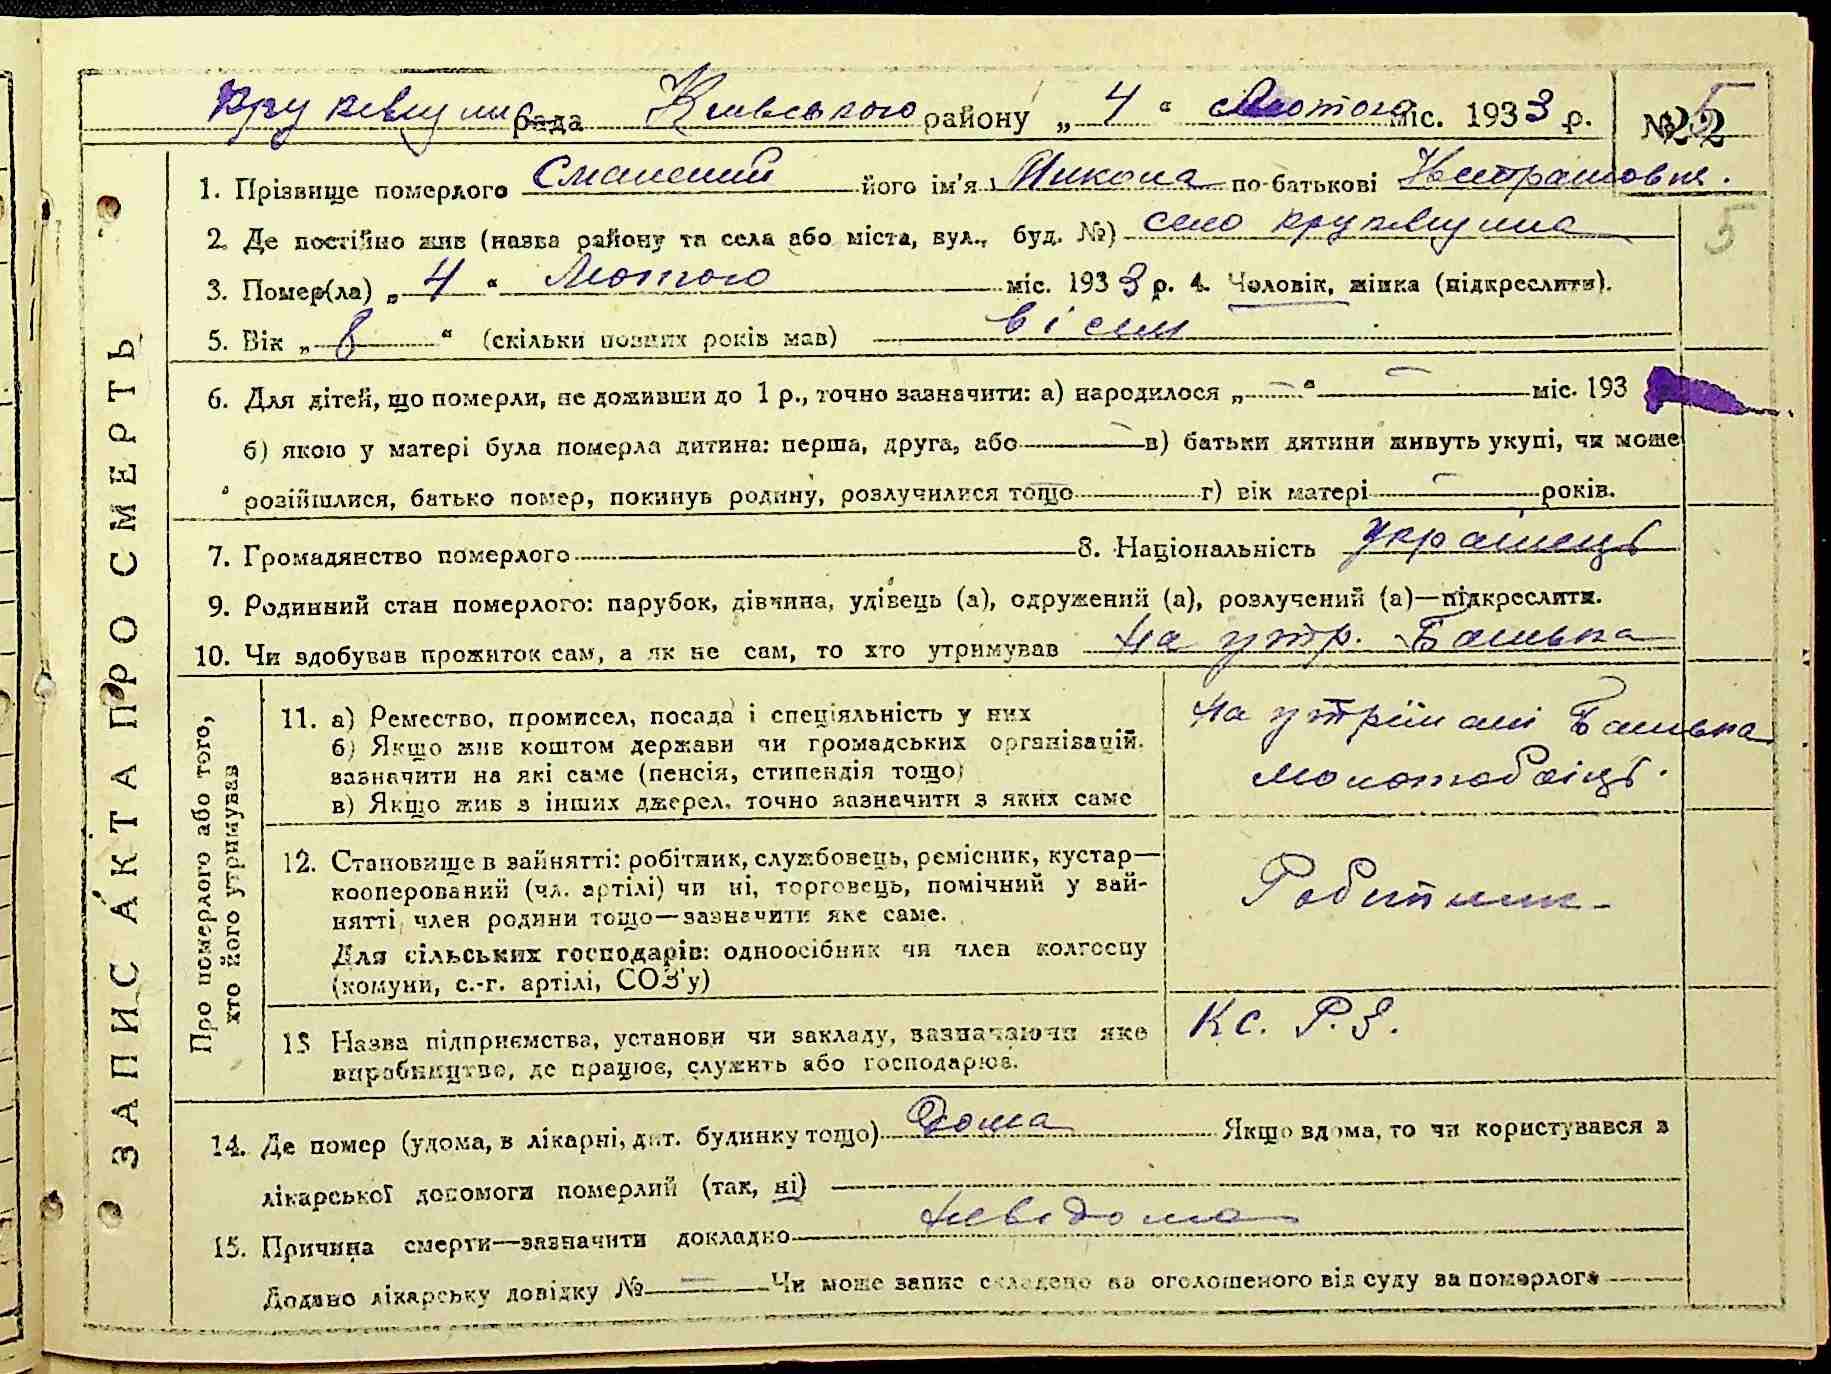 рада Київського району „ 4 “ Лютого міс. 1933 р. № 22 5
1. Прізвище померлого його ім'я Микола по-батькові
2. Де постійно жив (назва району та села або міста, вул., буд. №) село
5
3. Помер(ла) „ 4 “ Лютого міс. 1933 р. 4. Чоловік, жінка (підкреслити).
5. Вік „ 8 “ (скільки повних років мав) вісим
6. Для дітей, що померли, не доживши до 1 р., точно зазначити: а) народилося „ — “ — міс. 193
б) якою у матері була померла дитина: перша, друга, або — в) батьки дитини живуть укупі, чи може
розійшлися, батько помер, покинув родину, розлучилися тощо г) вік матері — років.
7. Громадянство померлого 8. Національність українець
9. Родинний стан померлого: парубок, дівчина, удівець (а), одружений (а), розлучений (а)—підкреслити.
10. Чи здобував прожиток сам, а як не сам, то хто утримував на утр. Батька
ЗАПИС АКТА ПРО СМЕРТЬ
Про померлого або того,
хто його утримував
11. а) Ремество, промисел, посада і спеціяльність у них
б) Якщо жив коштом держави чи громадських організацій,
зазначити на які саме (пенсія, стипендія тощо)
в) Якщо жив з інших джерел, точно зазначити з яких саме
на утрімані Батька
молотобоїць.
12. Становище в зайнятті: робітник, службовець, ремісник, кустар—
кооперований (чл. артілі) чи ні, торговець, помічний у зай-
нятті, член родини тощо—зазначити яке саме.
Для сільських господарів: одноосібник чи член колгоспу
(комуни, с.-г. артілі, СОЗ'у)
Робітник
13 Назва підприємства, установи чи закладу, зазначаючи яке
виробництво, де працює, служить або господарює.
Кс. Р. З.
14. Де помер (удома, в лікарні, дит. будинку тощо) Дома Якщо вдома, то чи користувався з
лікарської допомоги померлий (так, ні)
15. Причина смерти—зазначити докладно невідома
Додано лікарську довідку № — Чи може запис складено на оголошеного від суду за померлого